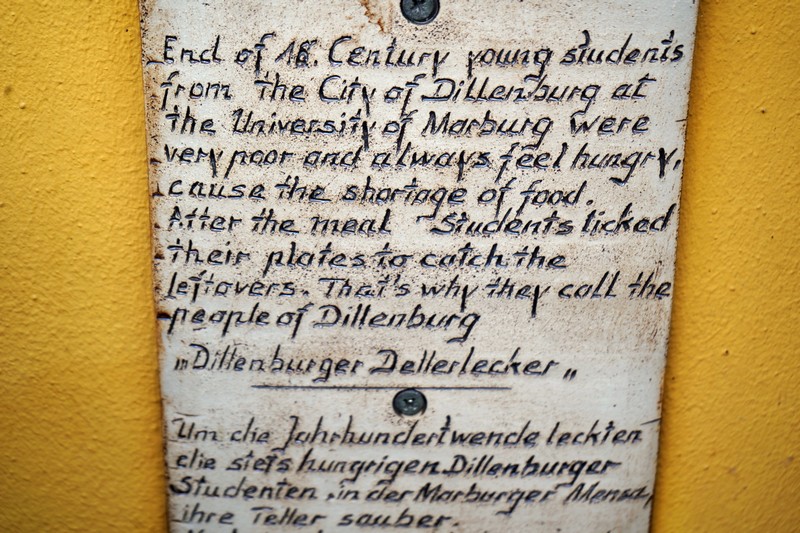 End of 18. Century young students
from the City of Dillenburg at
the University of Marburg were
very poor and always feel hungry,
cause the shortage of food.
After the meal Students licked
their plates to catch the
leftovers. That's why they call the
people of Dillenburg
„Dillenburger Dellerlecker„
Um die Jahrhundertwende leckten
die stets hungrigen Dillenburger
Studenten, in der Marburger Mensa,
ihre Teller sauber.